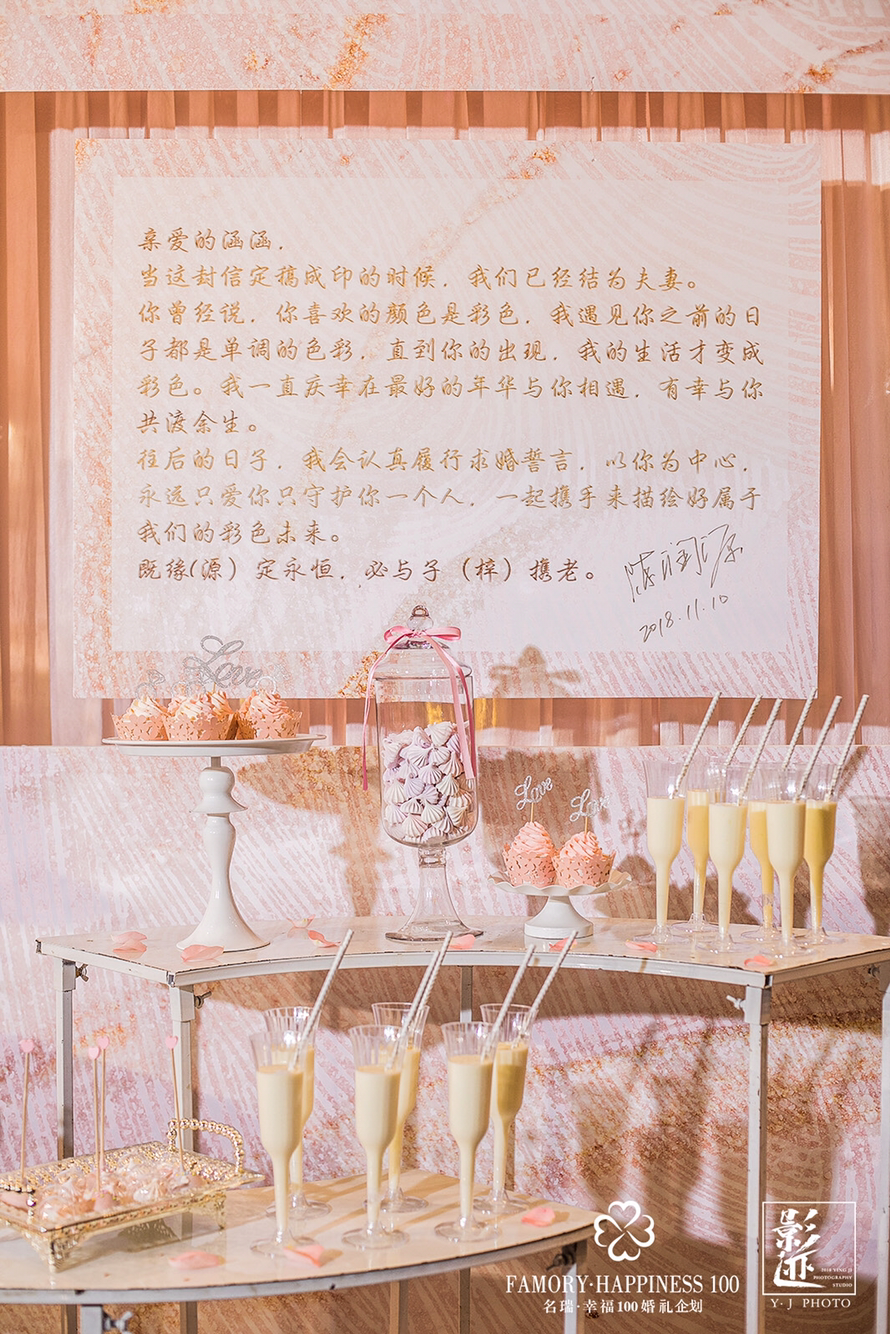 亲爱的涵涵,
当这封信定稿成印的时候,我们已经结为夫妻。
你曾经说,你喜欢的颜色是彩色,我遇见你之前的日
子都是单调的色彩,直到你的出现,我的生活才变成
彩色。我一直庆幸在最好的年华与你相遇,有幸与你
共渡余生。
往后的日子,我会认真履行求婚誓言,以你为中心,
永远只爱你只守护你一个人,一起携手来描绘好属于
我们的彩色未来。
既缘(源)定永恒,必与子(梓)携老。
2018.11.10
Love
Love
Love
FAMORY·HAPPINESS 100
名瑞·幸福100婚礼企划
影迹
2018 YING JI
PHOTOGRAPHY
STUDIO
Y·J PHOTO